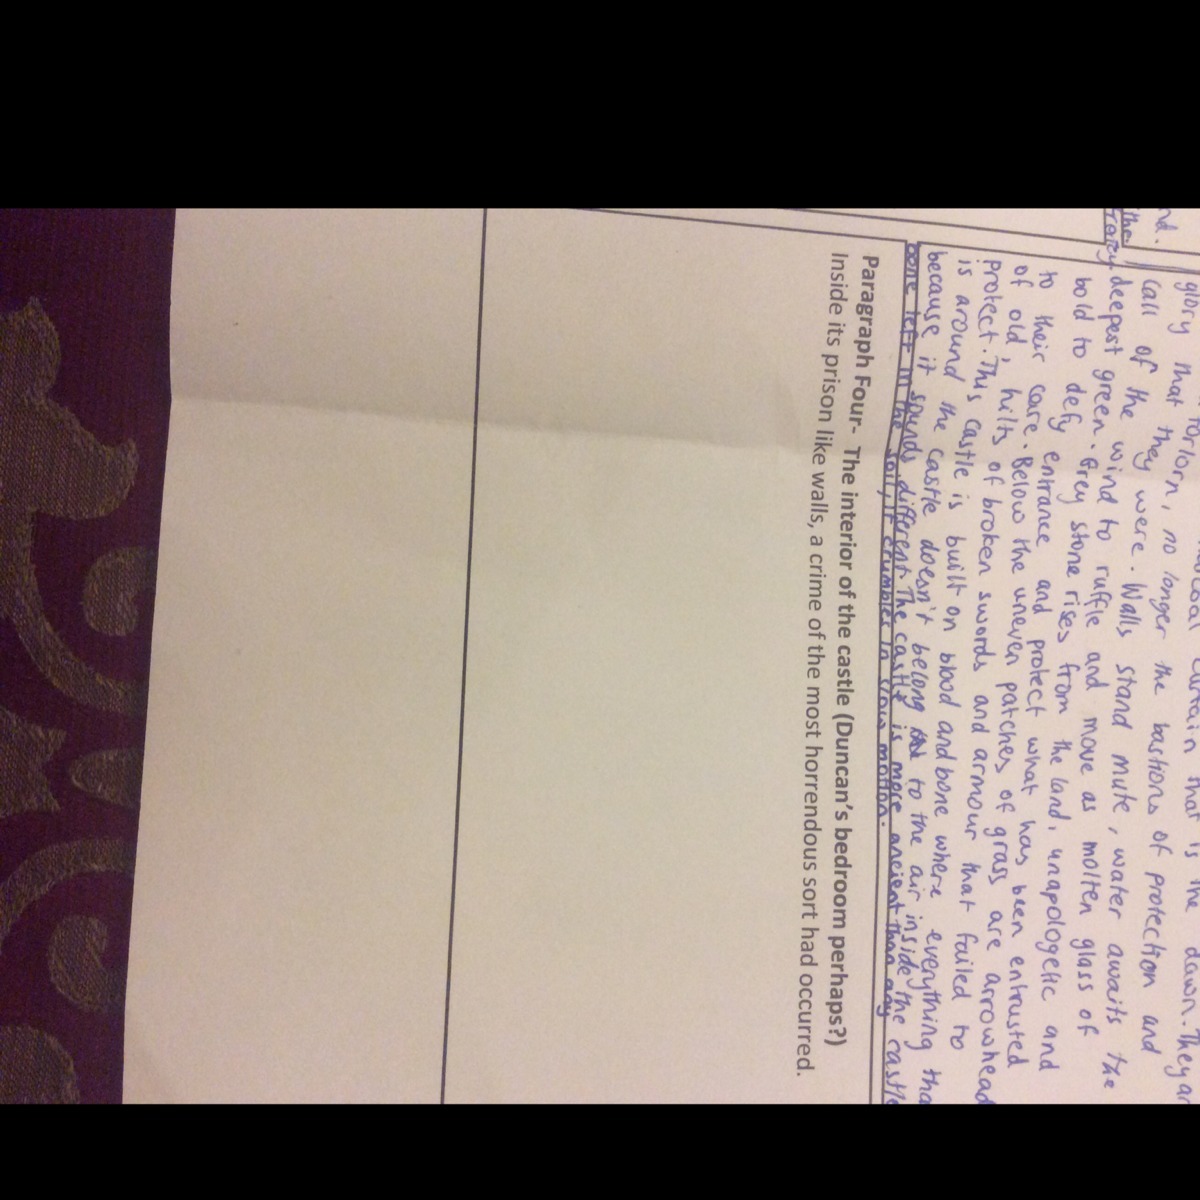 nd.
the
forlorn, curtain that is the dawn. They ar
glory that they no longer the bastions of protection and
call of the were. Walls stand mute, water awaits the
deepest green. wind to ruffle and move as molten glass of
bold to defy Grey stone rises from the land, unapologetic and
to their care. entrance and protect what has been entrusted
of old, hilts Below the uneven patches of grass are arrowhead
protect. This of broken swords and armour that failed to
is around the castle is built on blood and bone where everything tha
because it the castle doesn't belong to the air inside the castle
sounds different. The castle is more ancient than any
bone left in the soil, it crumbles in slow motion.
Paragraph Four- The interior of the castle (Duncan's bedroom perhaps?)
Inside its prison like walls, a crime of the most horrendous sort had occurred.